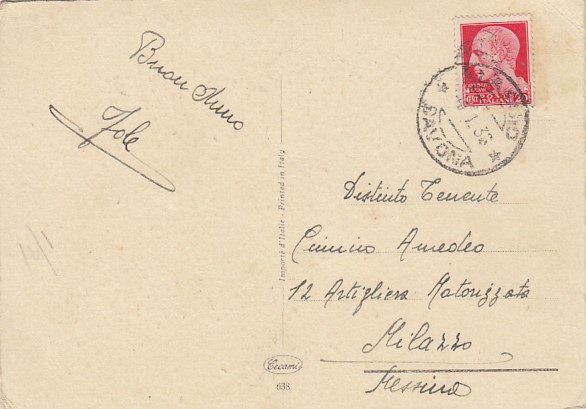 Buon Anno
Jole
12/1
Importé d'Italie - Printed in Italy
Cecami
638
POSTE ITALIANE
SAVONA
Distinto Tenente
Cumino Amedeo
12 Artiglieria Motorizzata
Milazzo
Messina